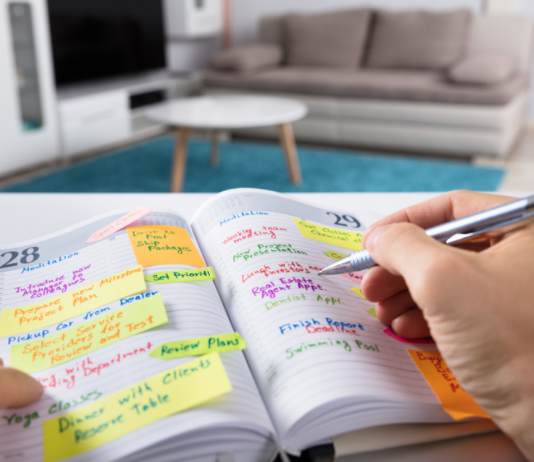 28
Meditation
Drive to
Post
Ship
Packages
Introduce new
Set Priorities
Prepare new Milestone
Project Plan
Pickup Car from Dealer
Select Service
Providers for
Review and Test
Department
Review Plans
Yoga Classes
Dinner with Clients
Reserve Table
29
Meditation
Weekly team
meeting
New Project
Presentation
Lunch with
Investors
Real Estate
Agent Appt.
Dentist Appt.
Finish Report
Deadline
Swimming Pool